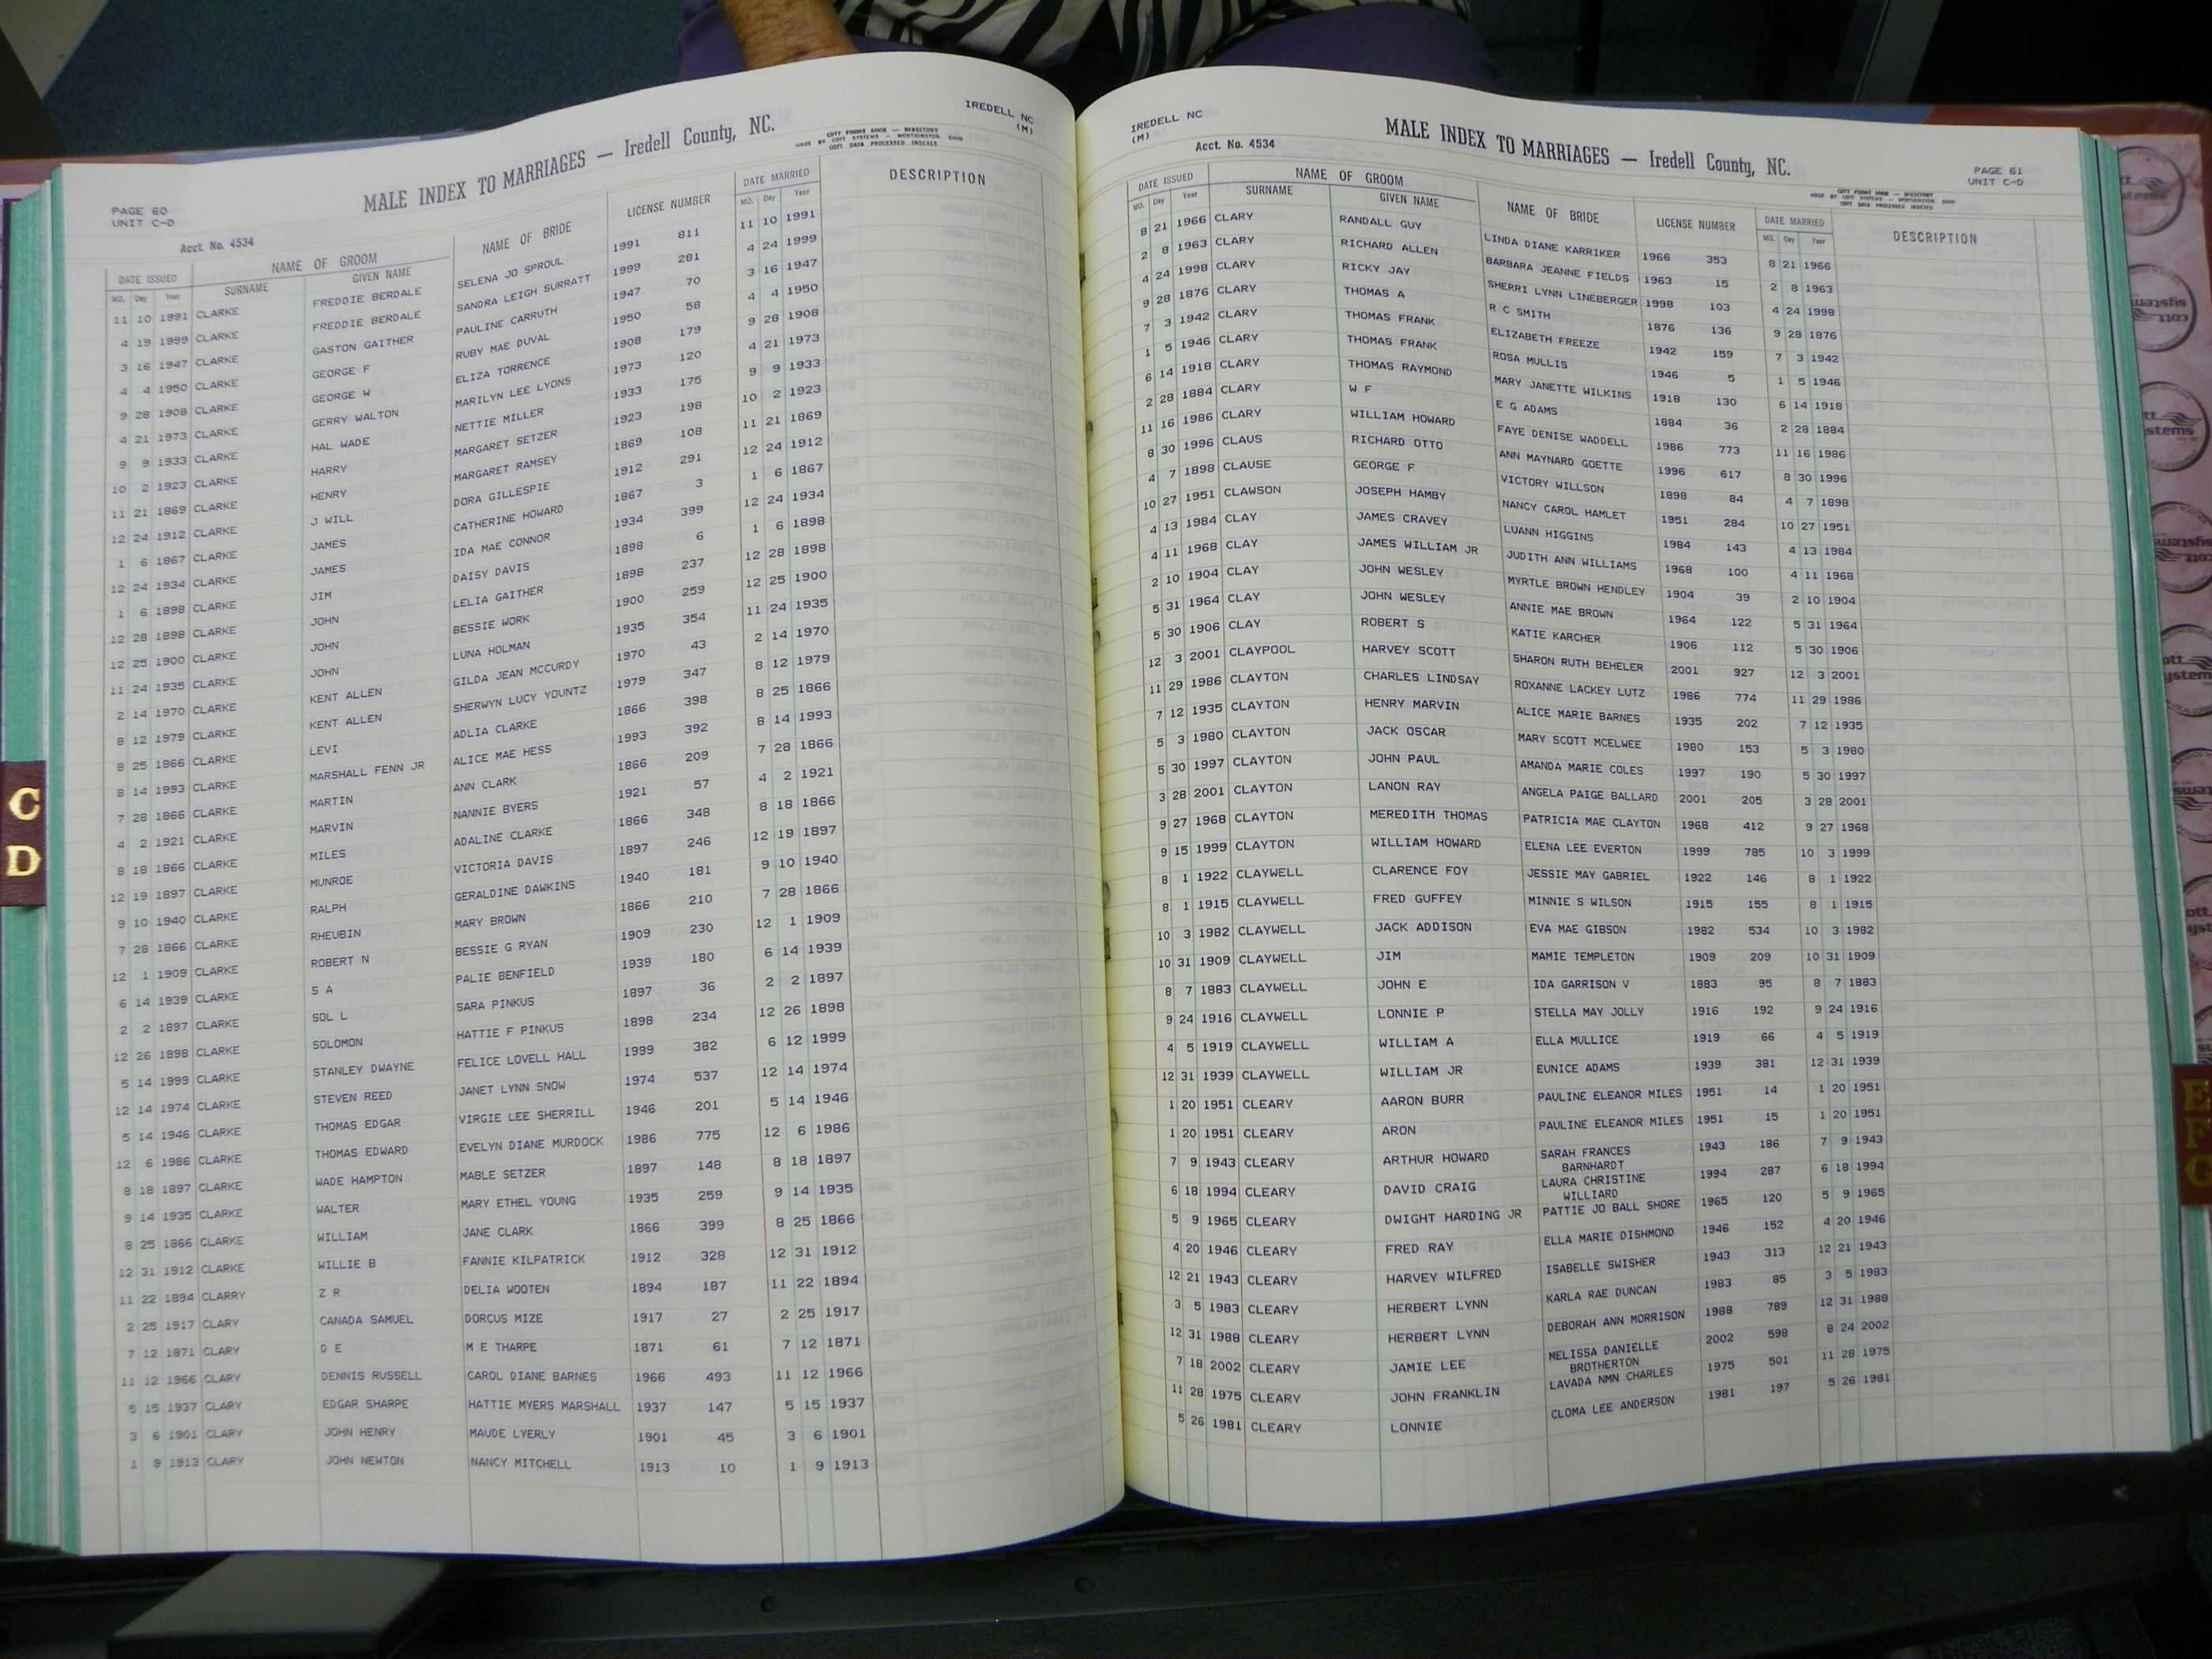 IREDELL NC
(M)
MALE INDEX TO MARRIAGES — Iredell County, NC.
COTT PHONE BOOK — DIRECTORY
MADE BY COTT SYSTEMS — WORTHINGTON, OHIO
COTT DATA PROCESSED INDEXES
PAGE 60
UNIT C-D
Acct. No. 4534
DATE ISSUED NAME OF GROOM NAME OF BRIDE LICENSE NUMBER DATE MARRIED DESCRIPTION
MO. Day Year SURNAME GIVEN NAME MO. Day Year
11 10 1991 CLARKE FREDDIE BERDALE SELENA JO SPROUL 1991 811 11 10 1991
4 19 1999 CLARKE FREDDIE BERDALE SANDRA LEIGH SURRATT 1999 281 4 24 1999
3 16 1947 CLARKE GASTON GAITHER PAULINE CARRUTH 1947 70 3 16 1947
4 4 1950 CLARKE GEORGE F RUBY MAE DUVAL 1950 58 4 4 1950
9 28 1908 CLARKE GEORGE W ELIZA TORRENCE 1908 179 9 28 1908
4 21 1973 CLARKE GERRY WALTON MARILYN LEE LYONS 1973 120 4 21 1973
9 9 1933 CLARKE HAL WADE NETTIE MILLER 1933 175 9 9 1933
10 2 1923 CLARKE HARRY MARGARET SETZER 1923 198 10 2 1923
11 21 1869 CLARKE HENRY MARGARET RAMSEY 1869 108 11 21 1869
12 24 1912 CLARKE J WILL DORA GILLESPIE 1912 291 12 24 1912
1 6 1867 CLARKE JAMES CATHERINE HOWARD 1867 3 1 6 1867
12 24 1934 CLARKE JAMES IDA MAE CONNOR 1934 399 12 24 1934
1 6 1898 CLARKE JIM DAISY DAVIS 1898 6 1 6 1898
12 28 1898 CLARKE JOHN LELIA GAITHER 1898 237 12 28 1898
12 25 1900 CLARKE JOHN BESSIE WORK 1900 259 12 25 1900
11 24 1935 CLARKE JOHN LUNA HOLMAN 1935 354 11 24 1935
2 14 1970 CLARKE KENT ALLEN GILDA JEAN MCCURDY 1970 43 2 14 1970
8 12 1979 CLARKE KENT ALLEN SHERWYN LUCY YOUNTZ 1979 347 8 12 1979
8 25 1866 CLARKE LEVI ADLIA CLARKE 1866 398 8 25 1866
8 14 1993 CLARKE MARSHALL FENN JR ALICE MAE HESS 1993 392 8 14 1993
7 28 1866 CLARKE MARTIN ANN CLARK 1866 209 7 28 1866
4 2 1921 CLARKE MARVIN NANNIE BYERS 1921 57 4 2 1921
8 18 1866 CLARKE MILES ADALINE CLARKE 1866 348 8 18 1866
12 19 1897 CLARKE MUNROE VICTORIA DAVIS 1897 246 12 19 1897
9 10 1940 CLARKE RALPH GERALDINE DAWKINS 1940 181 9 10 1940
7 28 1866 CLARKE RHEUBIN MARY BROWN 1866 210 7 28 1866
12 1 1909 CLARKE ROBERT N BESSIE G RYAN 1909 230 12 1 1909
6 14 1939 CLARKE S A PALIE BENFIELD 1939 180 6 14 1939
2 2 1897 CLARKE SOL L SARA PINKUS 1897 36 2 2 1897
12 26 1898 CLARKE SOLOMON HATTIE F PINKUS 1898 234 12 26 1898
5 14 1999 CLARKE STANLEY DWAYNE FELICE LOVELL HALL 1999 382 6 12 1999
12 14 1974 CLARKE STEVEN REED JANET LYNN SNOW 1974 537 12 14 1974
5 14 1946 CLARKE THOMAS EDGAR VIRGIE LEE SHERRILL 1946 201 5 14 1946
12 6 1986 CLARKE THOMAS EDWARD EVELYN DIANE MURDOCK 1986 775 12 6 1986
8 18 1897 CLARKE WADE HAMPTON MABLE SETZER 1897 148 8 18 1897
9 14 1935 CLARKE WALTER MARY ETHEL YOUNG 1935 259 9 14 1935
8 25 1866 CLARKE WILLIAM JANE CLARK 1866 399 8 25 1866
12 31 1912 CLARKE WILLIE B FANNIE KILPATRICK 1912 328 12 31 1912
11 22 1894 CLARRY Z R DELIA WOOTEN 1894 187 11 22 1894
2 25 1917 CLARY CANADA SAMUEL DORCUS MIZE 1917 27 2 25 1917
7 12 1871 CLARY D E M E THARPE 1871 61 7 12 1871
11 12 1966 CLARY DENNIS RUSSELL CAROL DIANE BARNES 1966 493 11 12 1966
5 15 1937 CLARY EDGAR SHARPE HATTIE MYERS MARSHALL 1937 147 5 15 1937
3 6 1901 CLARY JOHN HENRY MAUDE LYERLY 1901 45 3 6 1901
1 9 1913 CLARY JOHN NEWTON NANCY MITCHELL 1913 10 1 9 1913
C
D
IREDELL NC
(M)
Acct. No. 4534
MALE INDEX TO MARRIAGES — Iredell County, NC.
PAGE 61
UNIT C-D
COTT PHONE BOOK — DIRECTORY
MADE BY COTT SYSTEMS — WORTHINGTON, OHIO
COTT DATA PROCESSED INDEXES
DATE ISSUED NAME OF GROOM NAME OF BRIDE LICENSE NUMBER DATE MARRIED DESCRIPTION
MO. Day Year SURNAME GIVEN NAME MO. Day Year
8 21 1966 CLARY RANDALL GUY LINDA DIANE KARRIKER 1966 353 8 21 1966
2 8 1963 CLARY RICHARD ALLEN BARBARA JEANNE FIELDS 1963 15 2 8 1963
4 24 1998 CLARY RICKY JAY SHERRI LYNN LINEBERGER 1998 103 4 24 1998
9 28 1876 CLARY THOMAS A R C SMITH 1876 136 9 28 1876
7 3 1942 CLARY THOMAS FRANK ELIZABETH FREEZE 1942 159 7 3 1942
1 5 1946 CLARY THOMAS FRANK ROSA MULLIS 1946 5 1 5 1946
6 14 1918 CLARY THOMAS RAYMOND MARY JANETTE WILKINS 1918 130 6 14 1918
2 28 1884 CLARY W F E G ADAMS 1884 36 2 28 1884
11 16 1986 CLARY WILLIAM HOWARD FAYE DENISE WADDELL 1986 773 11 16 1986
8 30 1996 CLAUS RICHARD OTTO ANN MAYNARD GOETTE 1996 617 8 30 1996
4 7 1898 CLAUSE GEORGE F VICTORY WILLSON 1898 84 4 7 1898
10 27 1951 CLAWSON JOSEPH HAMBY NANCY CAROL HAMLET 1951 284 10 27 1951
4 13 1984 CLAY JAMES CRAVEY LUANN HIGGINS 1984 143 4 13 1984
4 11 1968 CLAY JAMES WILLIAM JR JUDITH ANN WILLIAMS 1968 100 4 11 1968
2 10 1904 CLAY JOHN WESLEY MYRTLE BROWN HENDLEY 1904 39 2 10 1904
5 31 1964 CLAY JOHN WESLEY ANNIE MAE BROWN 1964 122 5 31 1964
5 30 1906 CLAY ROBERT S KATIE KARCHER 1906 112 5 30 1906
12 3 2001 CLAYPOOL HARVEY SCOTT SHARON RUTH BEHELER 2001 927 12 3 2001
11 29 1986 CLAYTON CHARLES LINDSAY ROXANNE LACKEY LUTZ 1986 774 11 29 1986
7 12 1935 CLAYTON HENRY MARVIN ALICE MARIE BARNES 1935 202 7 12 1935
5 3 1980 CLAYTON JACK OSCAR MARY SCOTT MCELWEE 1980 153 5 3 1980
5 30 1997 CLAYTON JOHN PAUL AMANDA MARIE COLES 1997 190 5 30 1997
3 28 2001 CLAYTON LANON RAY ANGELA PAIGE BALLARD 2001 205 3 28 2001
9 27 1968 CLAYTON MEREDITH THOMAS PATRICIA MAE CLAYTON 1968 412 9 27 1968
9 15 1999 CLAYTON WILLIAM HOWARD ELENA LEE EVERTON 1999 785 10 3 1999
8 1 1922 CLAYWELL CLARENCE FOY JESSIE MAY GABRIEL 1922 146 8 1 1922
8 1 1915 CLAYWELL FRED GUFFEY MINNIE S WILSON 1915 155 8 1 1915
10 3 1982 CLAYWELL JACK ADDISON EVA MAE GIBSON 1982 534 10 3 1982
10 31 1909 CLAYWELL JIM MAMIE TEMPLETON 1909 209 10 31 1909
8 7 1883 CLAYWELL JOHN E IDA GARRISON V 1883 95 8 7 1883
9 24 1916 CLAYWELL LONNIE P STELLA MAY JOLLY 1916 192 9 24 1916
4 5 1919 CLAYWELL WILLIAM A ELLA MULLICE 1919 66 4 5 1919
12 31 1939 CLAYWELL WILLIAM JR EUNICE ADAMS 1939 381 12 31 1939
1 20 1951 CLEARY AARON BURR PAULINE ELEANOR MILES 1951 14 1 20 1951
1 20 1951 CLEARY ARON PAULINE ELEANOR MILES 1951 15 1 20 1951
7 9 1943 CLEARY ARTHUR HOWARD SARAH FRANCES 1943 186 7 9 1943
BARNHARDT
6 18 1994 CLEARY DAVID CRAIG LAURA CHRISTINE 1994 287 6 18 1994
WILLIARD
5 9 1965 CLEARY DWIGHT HARDING JR PATTIE JO BALL SHORE 1965 120 5 9 1965
4 20 1946 CLEARY FRED RAY ELLA MARIE DISHMOND 1946 152 4 20 1946
12 21 1943 CLEARY HARVEY WILFRED ISABELLE SWISHER 1943 313 12 21 1943
3 5 1983 CLEARY HERBERT LYNN KARLA RAE DUNCAN 1983 85 3 5 1983
12 31 1988 CLEARY HERBERT LYNN DEBORAH ANN MORRISON 1988 789 12 31 1988
7 18 2002 CLEARY JAMIE LEE MELISSA DANIELLE 2002 598 8 24 2002
BROTHERTON
11 28 1975 CLEARY JOHN FRANKLIN LAVADA NMN CHARLES 1975 501 11 28 1975
5 26 1981 CLEARY LONNIE CLOMA LEE ANDERSON 1981 197 5 26 1981
E
F
G